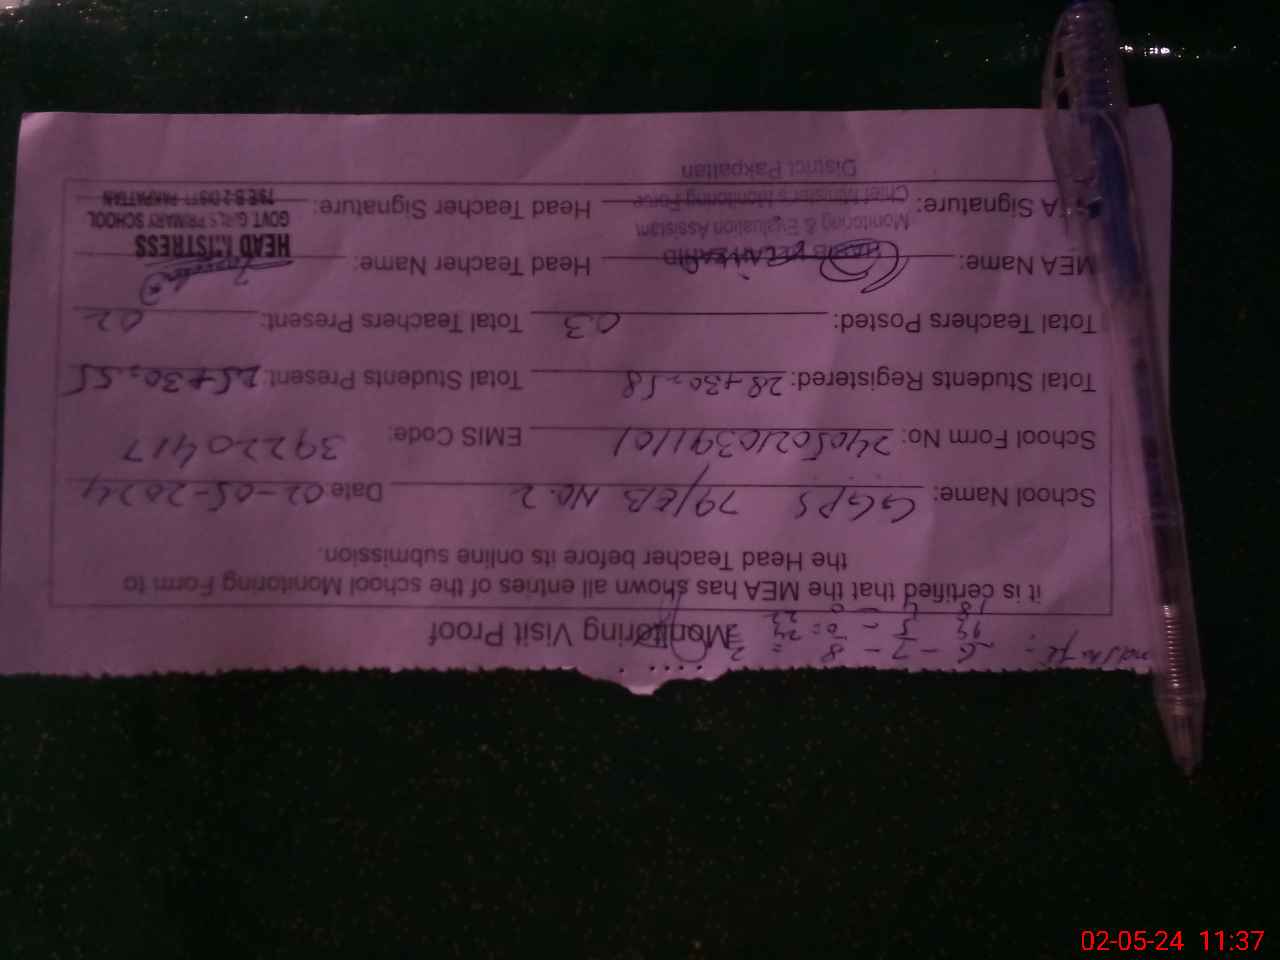 Monitoring Visit Proof
it is certified that the MEA has shown all entries of the school Monitoring Form to
the Head Teacher before its online submission.
School Name: GGPS 79/EB No.2 Date: 02-05-2024
School Form No: 240502103911101 EMIS Code: 39220417
Total Students Registered: 28+30=58 Total Students Present: 25+30=55
Total Teachers Posted: 03 Total Teachers Present: 02
MEA Name: Head Teacher Name:
MEA Signature: Head Teacher Signature:
Monitoring & Evaluation Assistant
Chief Minister's Monitoring Force
District Pakpattan
HEAD MISTRESS
GOVT GIRLS PRIMARY SCHOOL
79 E.B-2 DISTT PAKPATTAN
02-05-24 11:37